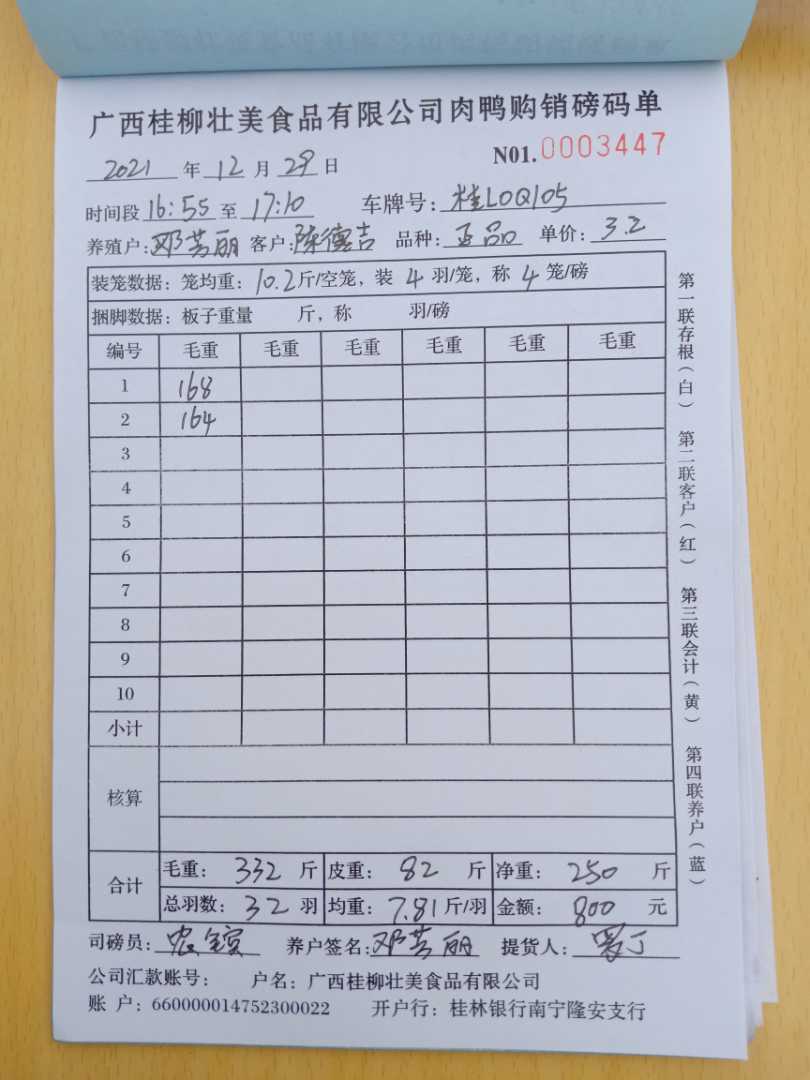 广西桂柳壮美食品有限公司肉鸭购销磅码单
2021 年 12 月 29 日 N01.0003447
时间段 16:55 至 17:10 车牌号: 桂L0Q105
养殖户: 邓芳丽 客户: 陈德吉 品种: 正品 单价: 3.2
装笼数据: 笼均重: 10.2 斤/空笼, 装 4 羽/笼, 称 4 笼/磅
捆脚数据: 板子重量 斤, 称 羽/磅
编号 毛重 毛重 毛重 毛重 毛重 毛重
1 168
2 164
3
4
5
6
7
8
9
10
小计
核算
合计 毛重: 332 斤 皮重: 82 斤 净重: 250 斤
总羽数: 32 羽 均重: 7.81 斤/羽 金额: 800 元
司磅员: 养户签名: 邓芳丽 提货人:
公司汇款账号: 户名: 广西桂柳壮美食品有限公司
账 户: 660000014752300022 开户行: 桂林银行南宁隆安支行
第一联存根(白) 第二联客户(红) 第三联会计(黄) 第四联养户(蓝)